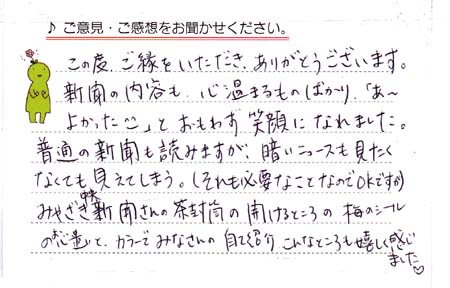 ♪ ご意見・ご感想をお聞かせください。
この度、ご縁をいただき、ありがとうございます。
新聞の内容も、心温まるものばかり、「あ〜
よかった」とおもわず笑顔になれました。
普通の新聞も読みますが、暗いニュースも見たく
なくても見えてしまう。(それも必要なことなのでOKですが)
みやざき中央新聞さんの茶封筒の開けるところの梅のシール
の心遣いと、カラーでみなさんの自己紹介 こんなところも嬉しく感じ
ました♡